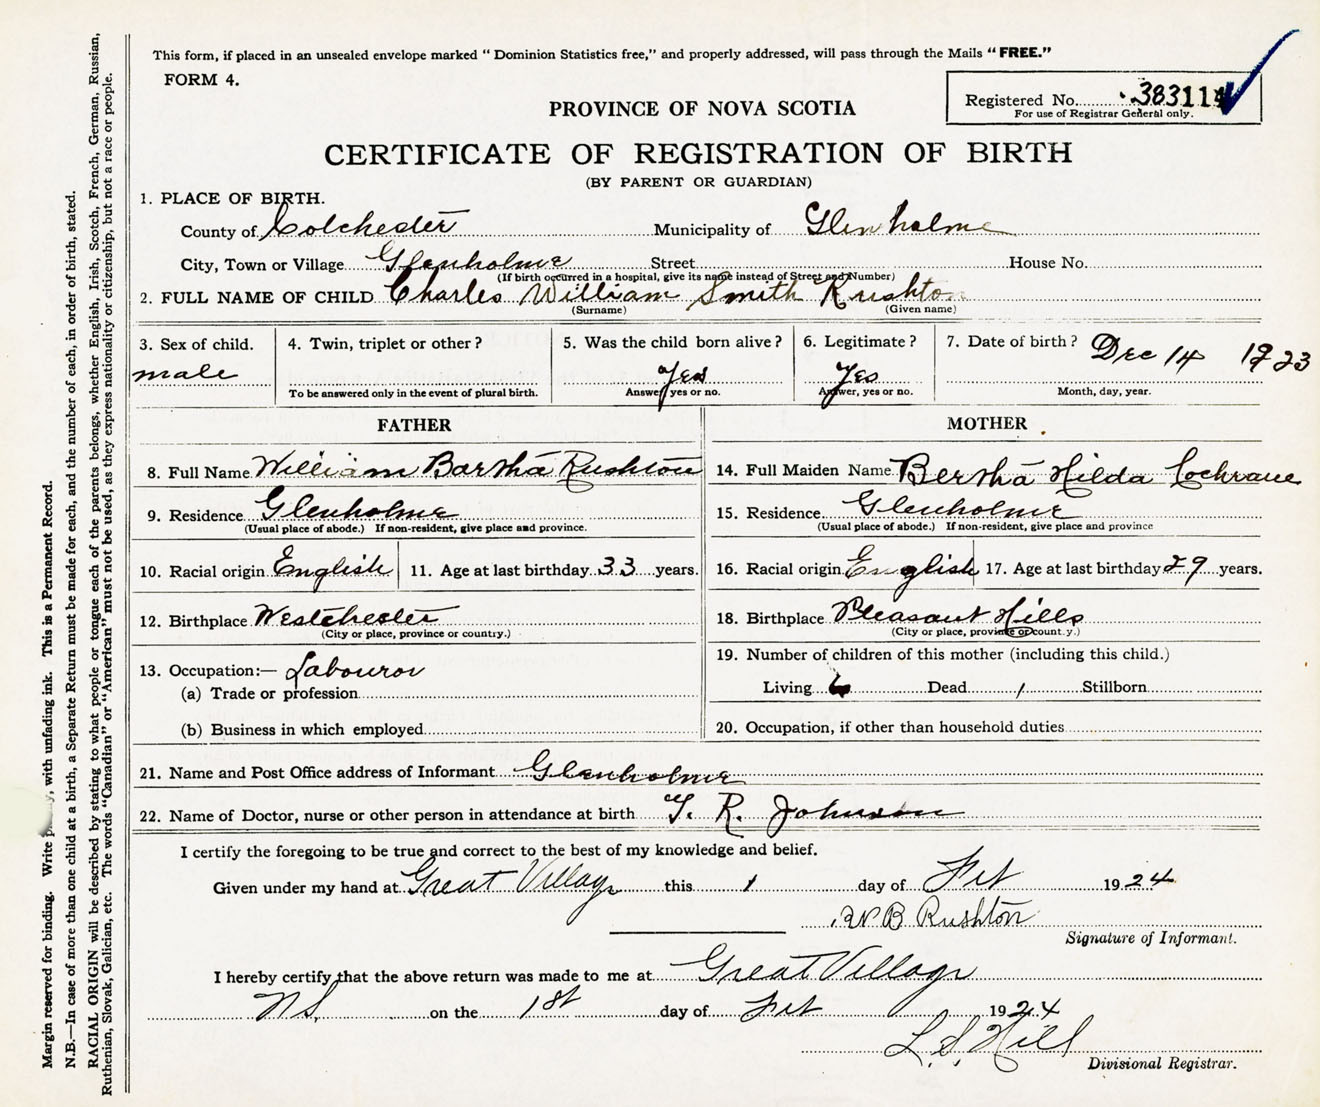 This form, if placed in an unsealed envelope marked " Dominion Statistics free," and properly addressed, will pass through the Mails " FREE."
FORM 4.
Registered No. 383114
For use of Registrar General only.
PROVINCE OF NOVA SCOTIA
CERTIFICATE OF REGISTRATION OF BIRTH
(BY PARENT OR GUARDIAN)
1. PLACE OF BIRTH.
County of Colchester Municipality of Glenholme
City, Town or Village Glenholme Street House No.
(If birth occurred in a hospital, give its name instead of Street and Number)
2. FULL NAME OF CHILD Charles William Smith Rushton
(Surname) (Given name)
3. Sex of child. male
4. Twin, triplet or other ?
To be answered only in the event of plural birth.
5. Was the child born alive ? Yes
Answer yes or no.
6. Legitimate ? Yes
Answer, yes or no.
7. Date of birth ? Dec 14 1923
Month, day, year.
FATHER
8. Full Name William Rushton
9. Residence Glenholme
(Usual place of abode.) If non-resident, give place and province.
10. Racial origin English 11. Age at last birthday 33 years.
12. Birthplace Westchester
(City or place, province or country.)
13. Occupation:— Labouror
(a) Trade or profession
(b) Business in which employed
MOTHER
14. Full Maiden Name Bertha Hilda Cochrane
15. Residence Glenholme
(Usual place of abode.) If non-resident, give place and province
16. Racial origin English 17. Age at last birthday 29 years.
18. Birthplace Pleasant Hills
(City or place, province or country.)
19. Number of children of this mother (including this child.)
Living 6 Dead 1 Stillborn
20. Occupation, if other than household duties
21. Name and Post Office address of Informant Glenholme
22. Name of Doctor, nurse or other person in attendance at birth T. R. Johnson
I certify the foregoing to be true and correct to the best of my knowledge and belief.
Given under my hand at Great Village this 1 day of Feb 1924
W B Rushton
Signature of Informant.
I hereby certify that the above return was made to me at Great Village
N.S. on the 1st day of Feb 1924
L. S. Hill
Divisional Registrar.
Margin reserved for binding. Write with unfading ink. This is a Permanent Record.
N.B.—In case of more than one child at a birth, a Separate Return must be made for each, and the number of each, in order of birth, stated.
RACIAL ORIGIN will be described by stating to what people or tongue each of the parents belongs, whether English, Irish, Scotch, French, German, Russian,
Ruthenian, Slovak, Galician, etc. The words "Canadian" or "American" must not be used, as they express nationality or citizenship, but not a race or people.